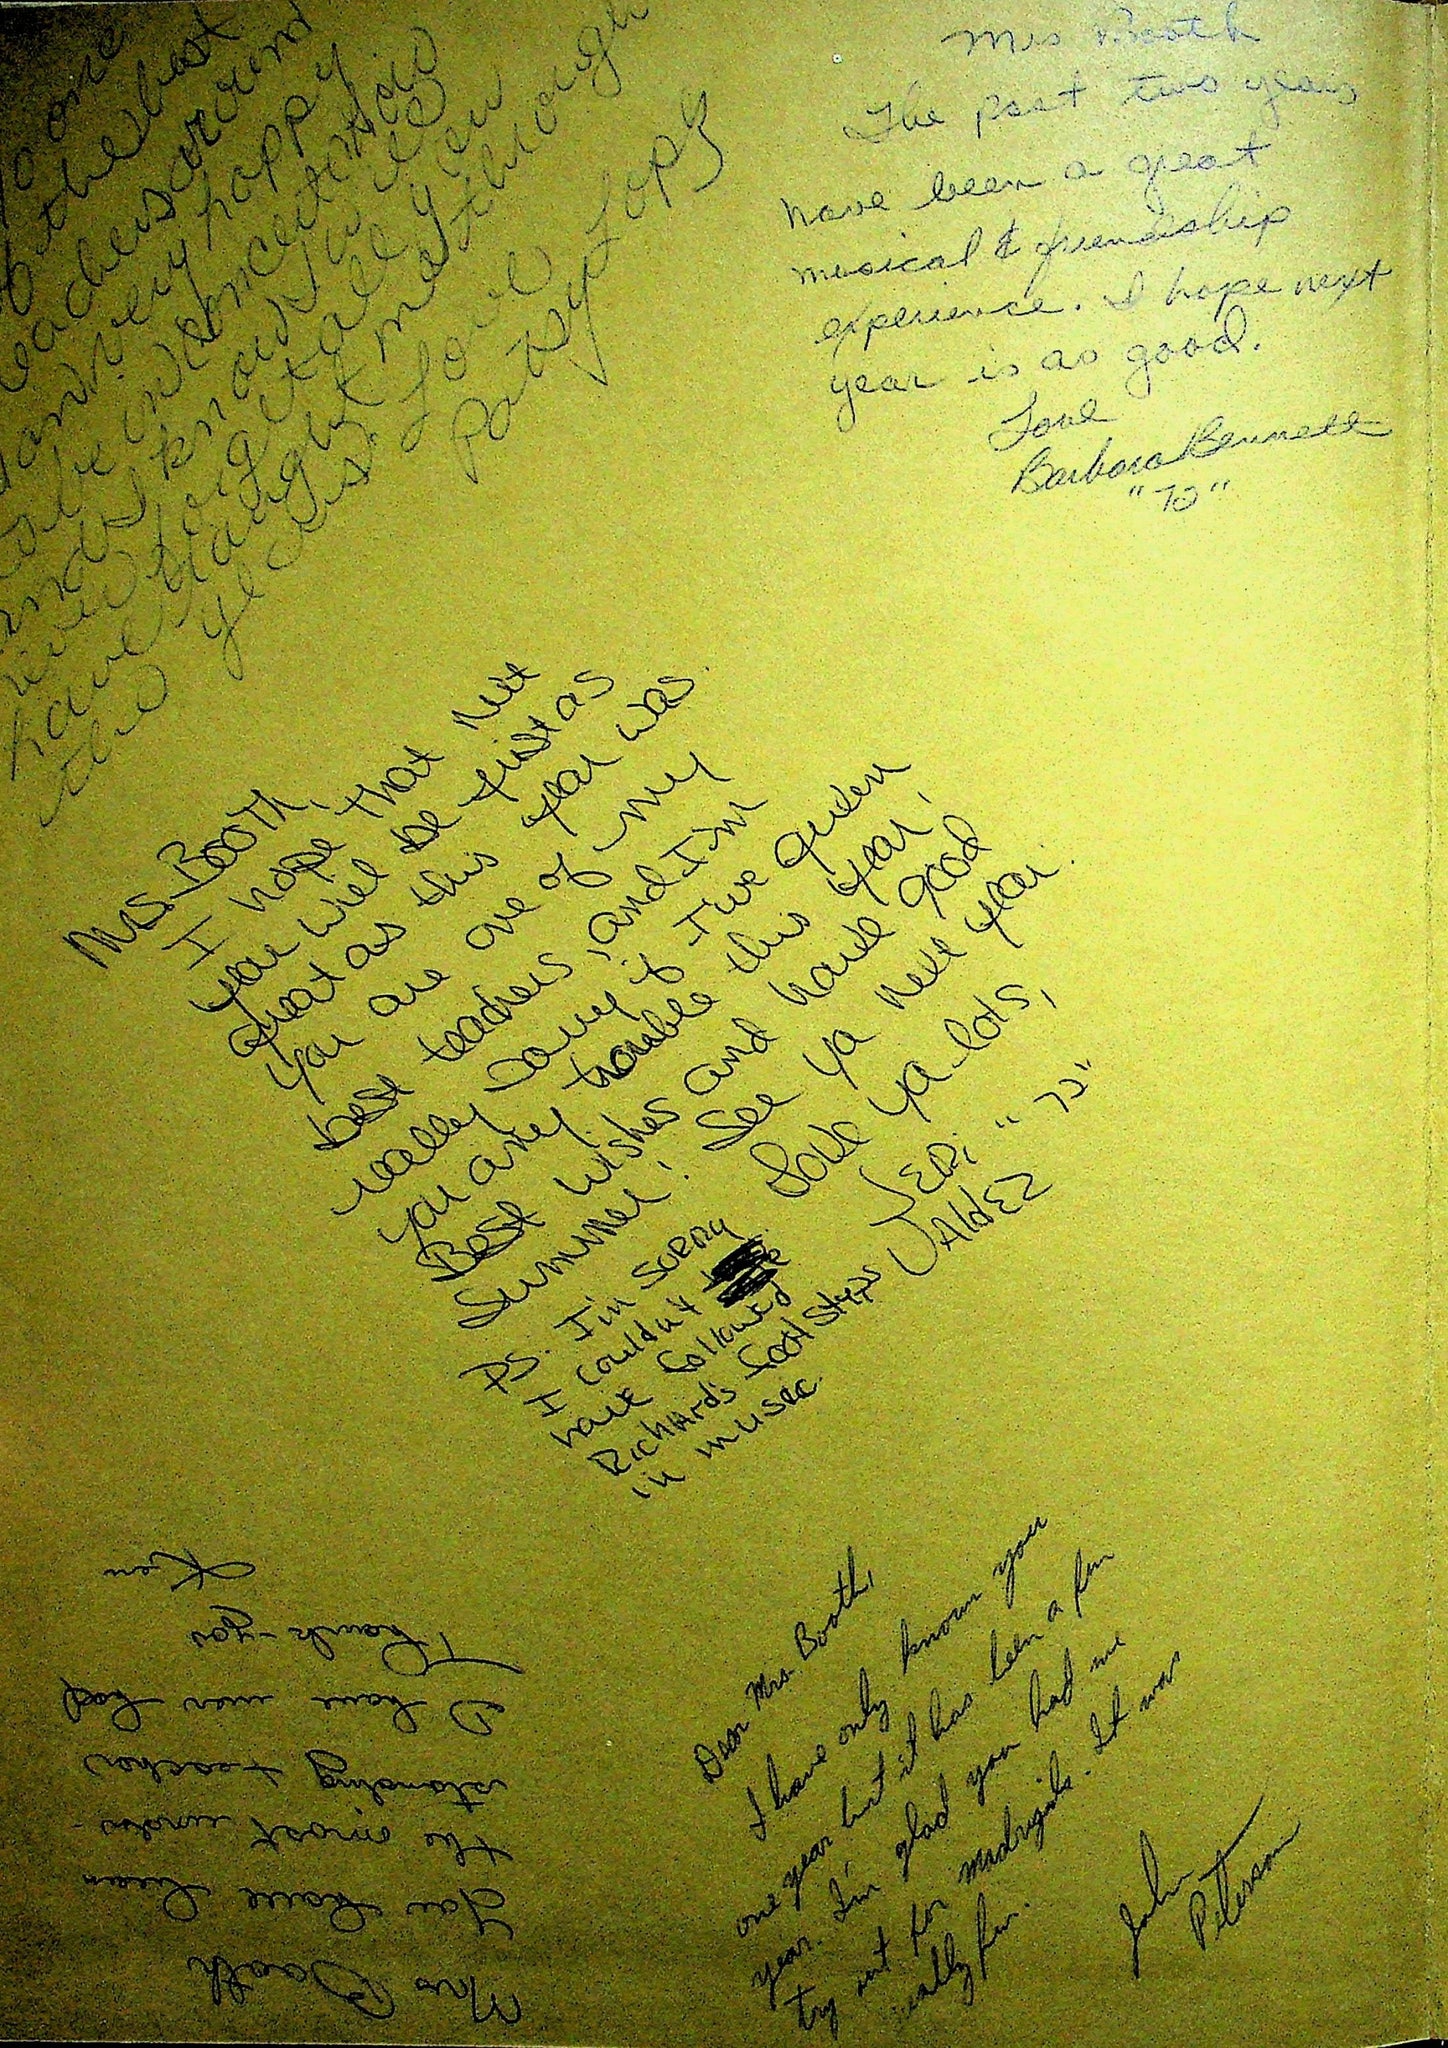 to one
of the best
teachers around
I am very happy
to be in concert choir
and I know I'll
never forget all you
have taught me through
the years. Love
Patsy Lopz
Mrs Booth
The past two years
have been a great
musical & friendship
experience. I hope next
year is as good.
Love
Barbara Bennett
"72"
Mrs. Booth,
I hope that next
year will be just as
great as this year was.
You are one of my
best teachers, and I'm
really sorry if I've given
you any trouble this year,
Best wishes and have good
Summer! See ya next year.
Love ya lots,
JERi "72"
VAldEz
PS. I'm SORRy
I couldn't
have followed
RicHARd's footsteps
in music.
Mrs Booth
You have been
the most under-
standing teacher
I have ever had
Thank-you
Ken
Dear Mrs. Booth,
I have only known you
one year but it has been a fun
year. I'm glad you had me
try out for madrigals. It was
really fun.
John
Peterson